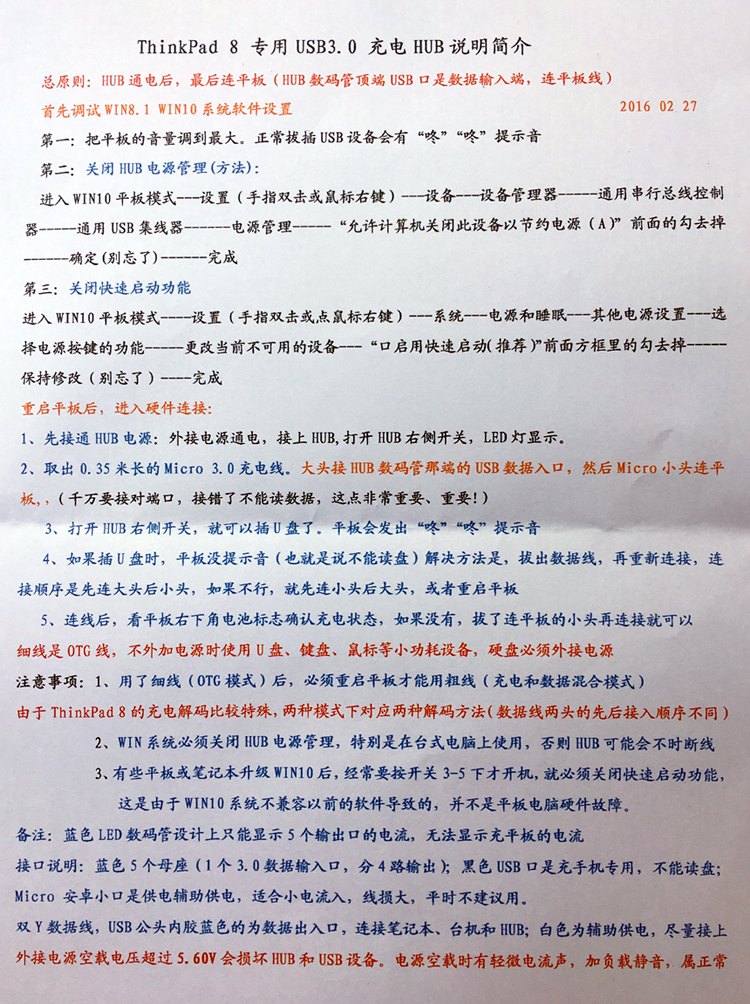 ThinkPad 8 专用 USB3.0 充电 HUB 说明简介
总原则：HUB 通电后，最后连平板（HUB 数码管顶端 USB 口是数据输入端，连平板线）
首先调试 WIN8.1 WIN10 系统软件设置 2016 02 27
第一：把平板的音量调到最大。正常拔插 USB 设备会有“咚”“咚”提示音
第二：关闭 HUB 电源管理(方法)：
进入 WIN10 平板模式---设置（手指双击或鼠标右键）---设备---设备管理器-----通用串行总线控制
器-----通用 USB 集线器------电源管理-----“允许计算机关闭此设备以节约电源（A)”前面的勾去掉
------确定(别忘了)------完成
第三：关闭快速启动功能
进入 WIN10 平板模式----设置（手指双击或点鼠标右键）---系统---电源和睡眠---其他电源设置---选
择电源按键的功能-----更改当前不可用的设备---“口启用快速启动(推荐)”前面方框里的勾去掉-----
保持修改（别忘了）----完成
重启平板后，进入硬件连接：
1、先接通 HUB 电源：外接电源通电，接上 HUB,打开 HUB 右侧开关，LED 灯显示。
2、取出 0.35 米长的 Micro 3.0 充电线。大头接 HUB 数码管那端的 USB 数据入口，然后 Micro 小头连平
板,，（千万要接对端口，接错了不能读数据，这点非常重要、重要!）
3、打开 HUB 右侧开关，就可以插 U 盘了。平板会发出“咚”“咚”提示音
4、如果插 U 盘时，平板没提示音（也就是说不能读盘）解决方法是，拔出数据线，再重新连接，连
接顺序是先连大头后小头，如果不行，就先连小头后大头，或者重启平板
5、连线后，看平板右下角电池标志确认充电状态，如果没有，拔了连平板的小头再连接就可以
细线是 OTG 线，不外加电源时使用 U 盘、键盘、鼠标等小功耗设备，硬盘必须外接电源
注意事项：1、用了细线（OTG 模式）后，必须重启平板才能用粗线（充电和数据混合模式）
由于 ThinkPad 8 的充电解码比较特殊，两种模式下对应两种解码方法(数据线两头的先后接入顺序不同)
2、WIN 系统必须关闭 HUB 电源管理，特别是在台式电脑上使用，否则 HUB 可能会不时断线
3、有些平板或笔记本升级 WIN10 后，经常要按开关 3-5 下才开机，就必须关闭快速启动功能，
这是由于 WIN10 系统不兼容以前的软件导致的，并不是平板电脑硬件故障。
备注：蓝色 LED 数码管设计上只能显示 5 个输出口的电流，无法显示充平板的电流
接口说明：蓝色 5 个母座（1 个 3.0 数据输入口，分 4 路输出）；黑色 USB 口是充手机专用，不能读盘；
Micro 安卓小口是供电辅助供电，适合小电流入，线损大，平时不建议用。
双 Y 数据线，USB 公头内胶蓝色的为数据出入口，连接笔记本、台机和 HUB；白色为辅助供电，尽量接上
外接电源空载电压超过 5.60V 会损坏 HUB 和 USB 设备。电源空载时有轻微电流声，加负载静音，属正常